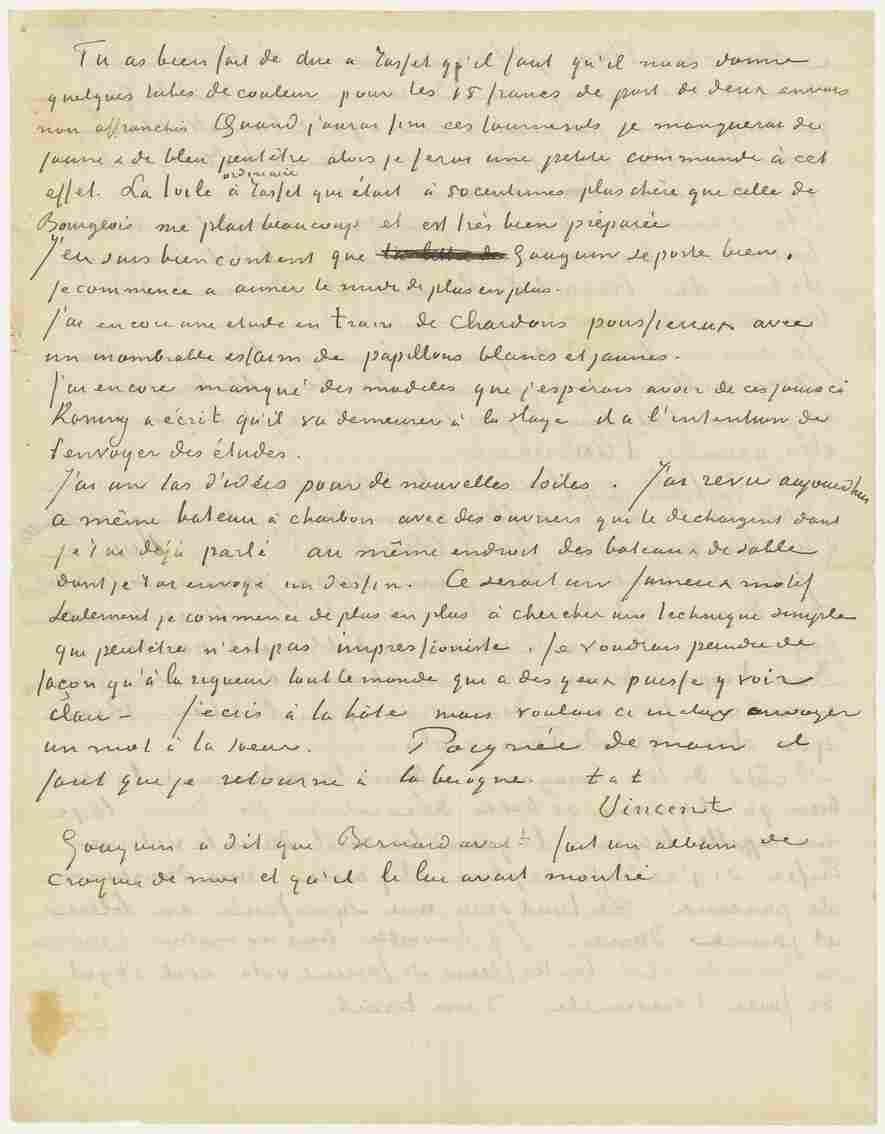 Tu as bien fait de dire à Tasset qu'il faut qu'il nous donne
quelques tubes de couleur pour les 15 francs de port de deux envois
non affranchis Quand j'aurai fini ces tournesols je manquerai de
jaune & de bleu peutêtre alors je ferai une petite commande à cet
effet. La toile ordinaire à Tasset qui était à 50 centimes plus chère que celle de
Bourgeois me plait beaucoup et est très bien préparée
J'en suis bien content que Gauguin se porte bien.
Je commence a aimer le midi de plus en plus.
J'ai encore une etude en train de chardons poussiereux avec
un inombrable essaim de papillons blancs et jaunes.
J'ai encore manqué des modeles que j'espérais avoir de ces jours ci
Koning a écrit qu'il va demeurer à la Haye il a l'intention de
t'envoyer des études.
J'ai un tas d'idées pour de nouvelles toiles. J'ai revu aujourdhui
ce même bateau à charbon avec des ouvriers qui le dechargent dont
je t'ai déjà parlé au même endroit des bateaux de sable
dont je t'ai envoyé un dessin. Ce serait un fameux motif
Seulement je commence de plus en plus à chercher une technique simple
qui peutêtre n'est pas impressioniste. Je voudrais peindre de
façon qu'à la rigueur tout le monde qui a des yeux puisse y voir
clair – J'écris à la hâte mais voulais ci inclux envoyer
un mot à la soeur. Poignée de main il
faut que je retourne à la besogne. t. à t.
Vincent
Gauguin a dit que Bernard avait fait un album de
croquis de moi et qu'il le lui avait montré